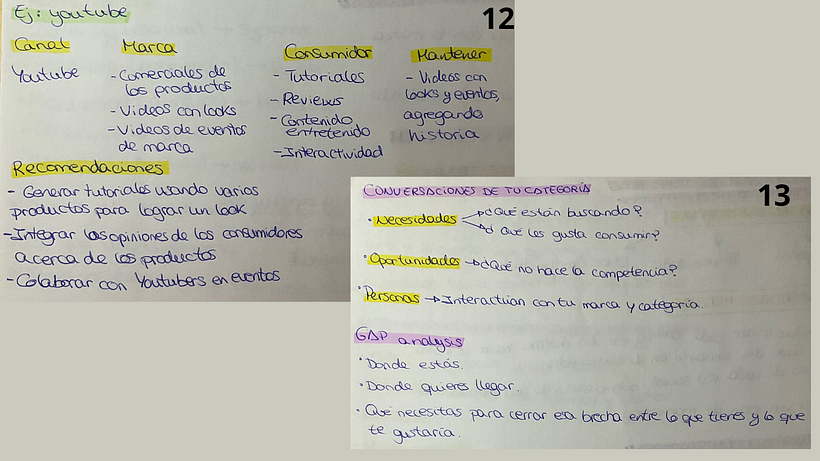 12
Ej: youtube
Canal Marca Consumidor Mantener
Youtube
- Comerciales de
los productos
- Videos con looks
- Videos de eventos
de marca
- Tutoriales
- Reviews
- Contenido
entretenido
- Interactividad
- Videos con
looks y eventos,
agregando
historia
Recomendaciones
- Generar tutoriales usando varios
productos para lograr un look
- Integrar las opiniones de los consumidores
acerca de los productos
- Colaborar con Youtubers en eventos
13
CONVERSACIONES DE TU CATEGORÍA
· Necesidades → ¿Qué están buscando?
→ ¿Qué les gusta consumir?
· Oportunidades → ¿Qué no hace la competencia?
· Personas → Interactúan con tu marca y categoría.
GAP analysis
· Donde estás.
· Donde quieres llegar.
· Qué necesitas para cerrar esa brecha entre lo que tienes y lo que
te gustaría.